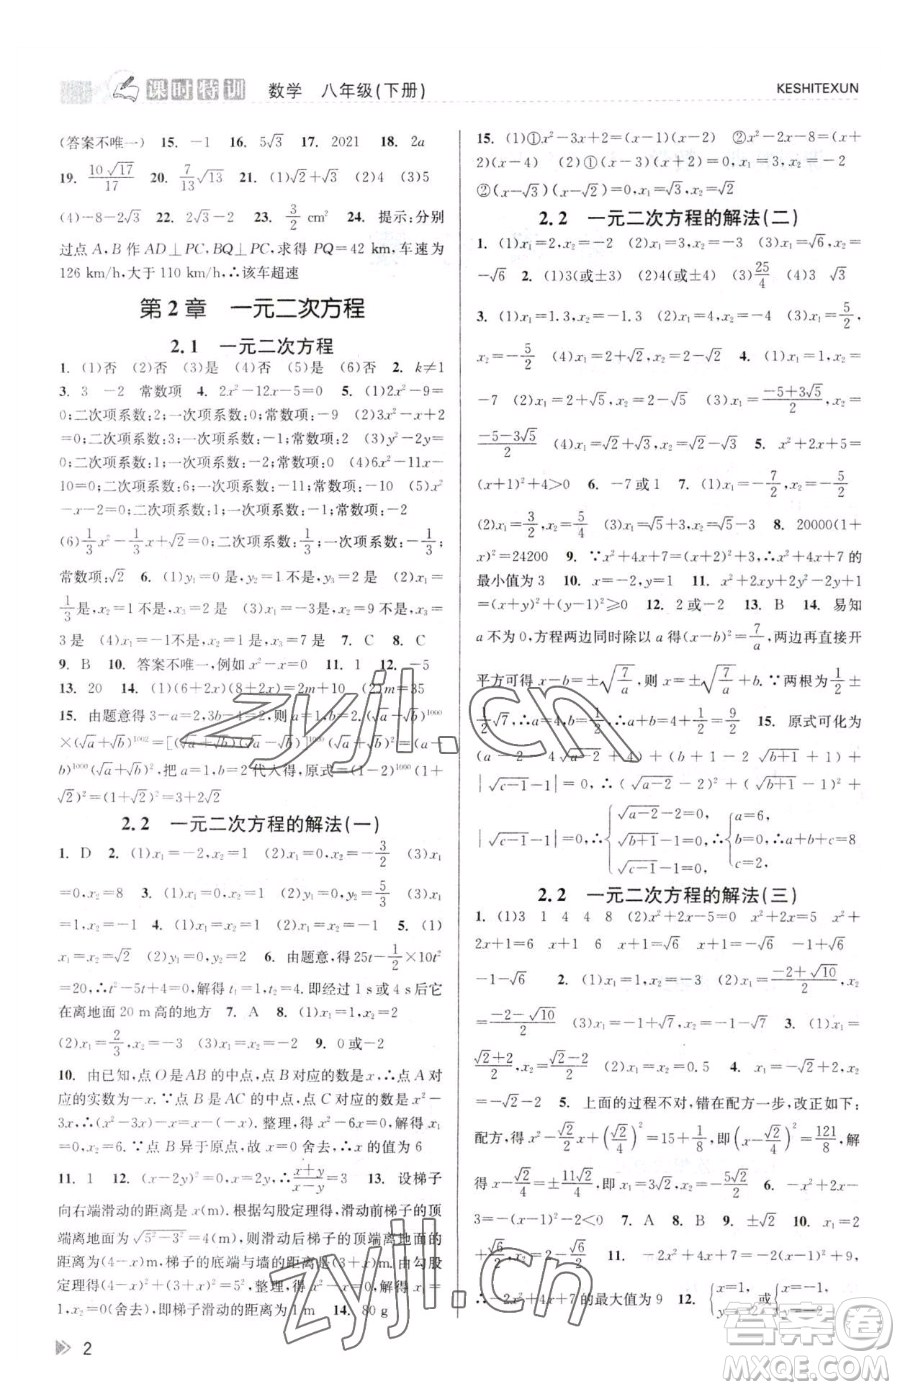 课时特训 数学 八年级(下册) KESHITEXUN
(答案不唯一) 15. -1 16. 5√3 17. 2021 18. 2a
19. 10√17/17 20. 7/13 √13 21. (1)√2+√3 (2)4 (3)5
(4)-8-2√3 22. 2√3-2 23. 3/2 cm² 24. 提示:分别
过点 A,B 作 AD⊥PC,BQ⊥PC,求得 PQ=42 km,车速为
126 km/h,大于 110 km/h,∴该车超速
第 2 章 一元二次方程
2.1 一元二次方程
1. (1)否 (2)否 (3)是 (4)否 (5)是 (6)否 2. k≠1
3. 3 -2 常数项 4. 2x²-12x-5=0 5. (1)2x²-9=
0;二次项系数:2;一次项系数:0;常数项:-9 (2)x²-x+2
=0;二次项系数:1;一次项系数:-1;常数项:2 (3)y²-2y=
0;二次项系数:1;一次项系数:-2;常数项:0 (4)6x²-11x-
10=0;二次项系数:6;一次项系数:-11;常数项:-10 (5)x²-
x-2=0;二次项系数:1;一次项系数:-1;常数项:-2
(6)1/3 x²-1/3 x+√2=0;二次项系数:1/3;一次项系数:-1/3;
常数项:√2 6. (1)y₁=0 是,y₂=1 不是,y₃=2 是 (2)x₁=
1/3是,x₂=1 不是,x₃=2 不是 (3)x₁=0 是,x₂=-3 不是,x₃=
3 是 (4)x₁=-1不是,x₂=0 是,x₃=1 不是 7. C 8. C
9. B 10. 答案不唯一,例如 x²-x=0 11. 1 12. -5
13. 20 14. (1)(6+2x)(8+2x)=2m+10 (2)m=35
15. 由题意得 3-a=2,3b-1=2,则 a=1,b=1,(√a-√b)¹⁰⁰⁰
×(√a+√b)¹⁰⁰²=[(√a+√b)(√a-√b)]¹⁰⁰⁰(√a+√b)²=(a-
b)¹⁰⁰⁰(√a+√b)²,把 a=1,b=2 代入得,原式=(1-2)¹⁰⁰⁰(1+
√2)²=1×(1+√2)²=3+2√2
2.2 一元二次方程的解法(一)
1. D 2. (1)x₁=-4,x₂=1 (2)x₁=0,x₂=-3/2 (3)x₁
=0,x₂=8 3. (1)x₁=0,x₂=4 (2)x₁=0,x₂=5/3 (3)x₁
=0,x₂=-1 4. (1)x₁=x₂=1 (2)x₁=3,x₂=-1 5. (1)
x₁=x₂=√2 (2)y₁=0,y₂=√3 6. 由题意,得 25t-1/2×10t²
=20,∴t²-5t+4=0,解得 t₁=1,t₂=4.即经过 1 s或 4 s后
在离地面 20 m 高的地方 7. A 8. (1)x₁=1,x₂=2
(2)x₁=2/3,x₂=0 (3)x₁=2,x₂=3 9. 0或-2
10. 由已知,点 O 是 AB 的中点,点 B 对应的数是 x,则点 A 对
应的实数为-x.∵点 B 是 AC 的中点,点 C 对应的数是 x²-
3x,∴(x²-3x)-x=x-(-x).整理,得 x²-6x=0,解得 x₁=
0,x₂=6.∵点 B 异于原点,故 x=0 舍去,∴x 的值为 6
11. 1 12. (x-2y)²=0,∴x=2y,∴x+y/x-y=3 13. 设梯子
向右端滑动的距离是 x(m).根据勾股定理得,滑动前梯子的顶
端离地面为√5²-3²=4(m),则滑动后梯子的顶端离地面的
距离为(4-x)m,梯子的底端与墙的距离是(3+x)m.由勾股
定理得(4-x)²+(3+x)²=5².整理,得 x²-x=0,解得 x₁=0,x₂
=1.x=0(舍去),即梯子滑动的距离为 1 m 14. 80 g
2
15. (1)①x²-3x+2=(x-1)(x-2) ②x²-2x-8=(x+
2)(x-4) (2)①(x-1)(x+2)=0,x₁=1,x₂=-2
②(x-√3)(x-√5)=0,x₁=√3,x₂=√5
2.2 一元二次方程的解法(二)
1. (1)x₁=2,x₂=-2 (2)x₁=3,x₂=-3 (3)x₁=√6,x₂=
-√6 2. (1)3(或±3) (2)4(或±4) (3)25/4
3. (1)x₁=1.3,x₂=-1.3 (2)x₁=4,x₂=-4 (3)x₁=5/2,
x₂=-5/2 (4)x₁=√2,x₂=-√2 4. (1)x₁=1,x₂=
-7 (2)x₁=2+√5,x₂=2-√5 (3)x₁=-5+3√5/2,x₂=
-5-3√5/2 (4)x₁=√2+√3,x₂=√2-√3 5. x²+2x+5=
(x+1)²+4>2 6. -7或1 7. (1)x₁=5/2,x₂=-5/2
(2)x₁=3/2,x₂=5/4 (3)x₁=√5-3,x₂=-√5-3 8. 20000(1+
x)²=24200 9. ∵x²+4x+7=(x+2)²+3,∴x²+4x+7的
最小值为 3 10. x=-2,y=1 11. x²+2xy+2y²+2y+
1=(x+y)²+(y+1)²≥0 12. 2或-2 13. B 14. 易知
a 不为 0,方程两边同时除以 a 得(x-b)²=7/a,两边再开
平方可得 x-b=±√7/a,则 x=±√7/a+b.∵两根为 1/2±
1/2√7,∴a=4,b=1/2,∴a+b=4+1/2=9/2 15. 原式可化为
|√c-1-1|=0,∴(√a-2-2)²+(√b+1-1)²+
|√c-1-1|=0.∴{√a-2-2=0, √b+1-1=0,∴ √c-1-1=0, {a=6, b=0,∴a+b+c=8 c=2,
2.2 一元二次方程的解法(三)
1. (1)3 1 4 4 8 (2)x²+2x-5=0 x²+2x=5 x²+
2x+1=6 (x+1)²=6 x+1=±√6 x₁=√6-1 x₂=
-√6-1 2. (1)x₁=3,x₂=1 (2)x₁=-2+√10/2,x₂=
-2-√10/2 (3)x₁=-1+√6,x₂=-1-√6 3. (1)x₁=
√2+2/2,x₂=√2-2/2 (2)x₁=2,x₂=0.5 4. (x-1)²+
1≥1 5. 上面的过程不对,错在配方一步,改正如下:
配方,得 x²-√2/2x+(√2/4)²=15+1/8,即(x-√2/4)²=121/8,解
得 x-√2/4=±11√2/4,∴x₁=3√2,x₂=-5√2/2 6. -x²+4x
-5=-(x-2)²-1<0 7. A 8. B 9. ±√2 10. x₁=
√6/2,x₂=-√6/2 11. ∵-2x²+4x+7=-2(x-1)²+9,
∴-2x²+4x+7的最大值为 9 12. {x=1, y=2, {x=-1, y=-2
zyjl.cn
zyjl.cn
答案圈
MXQE.COM